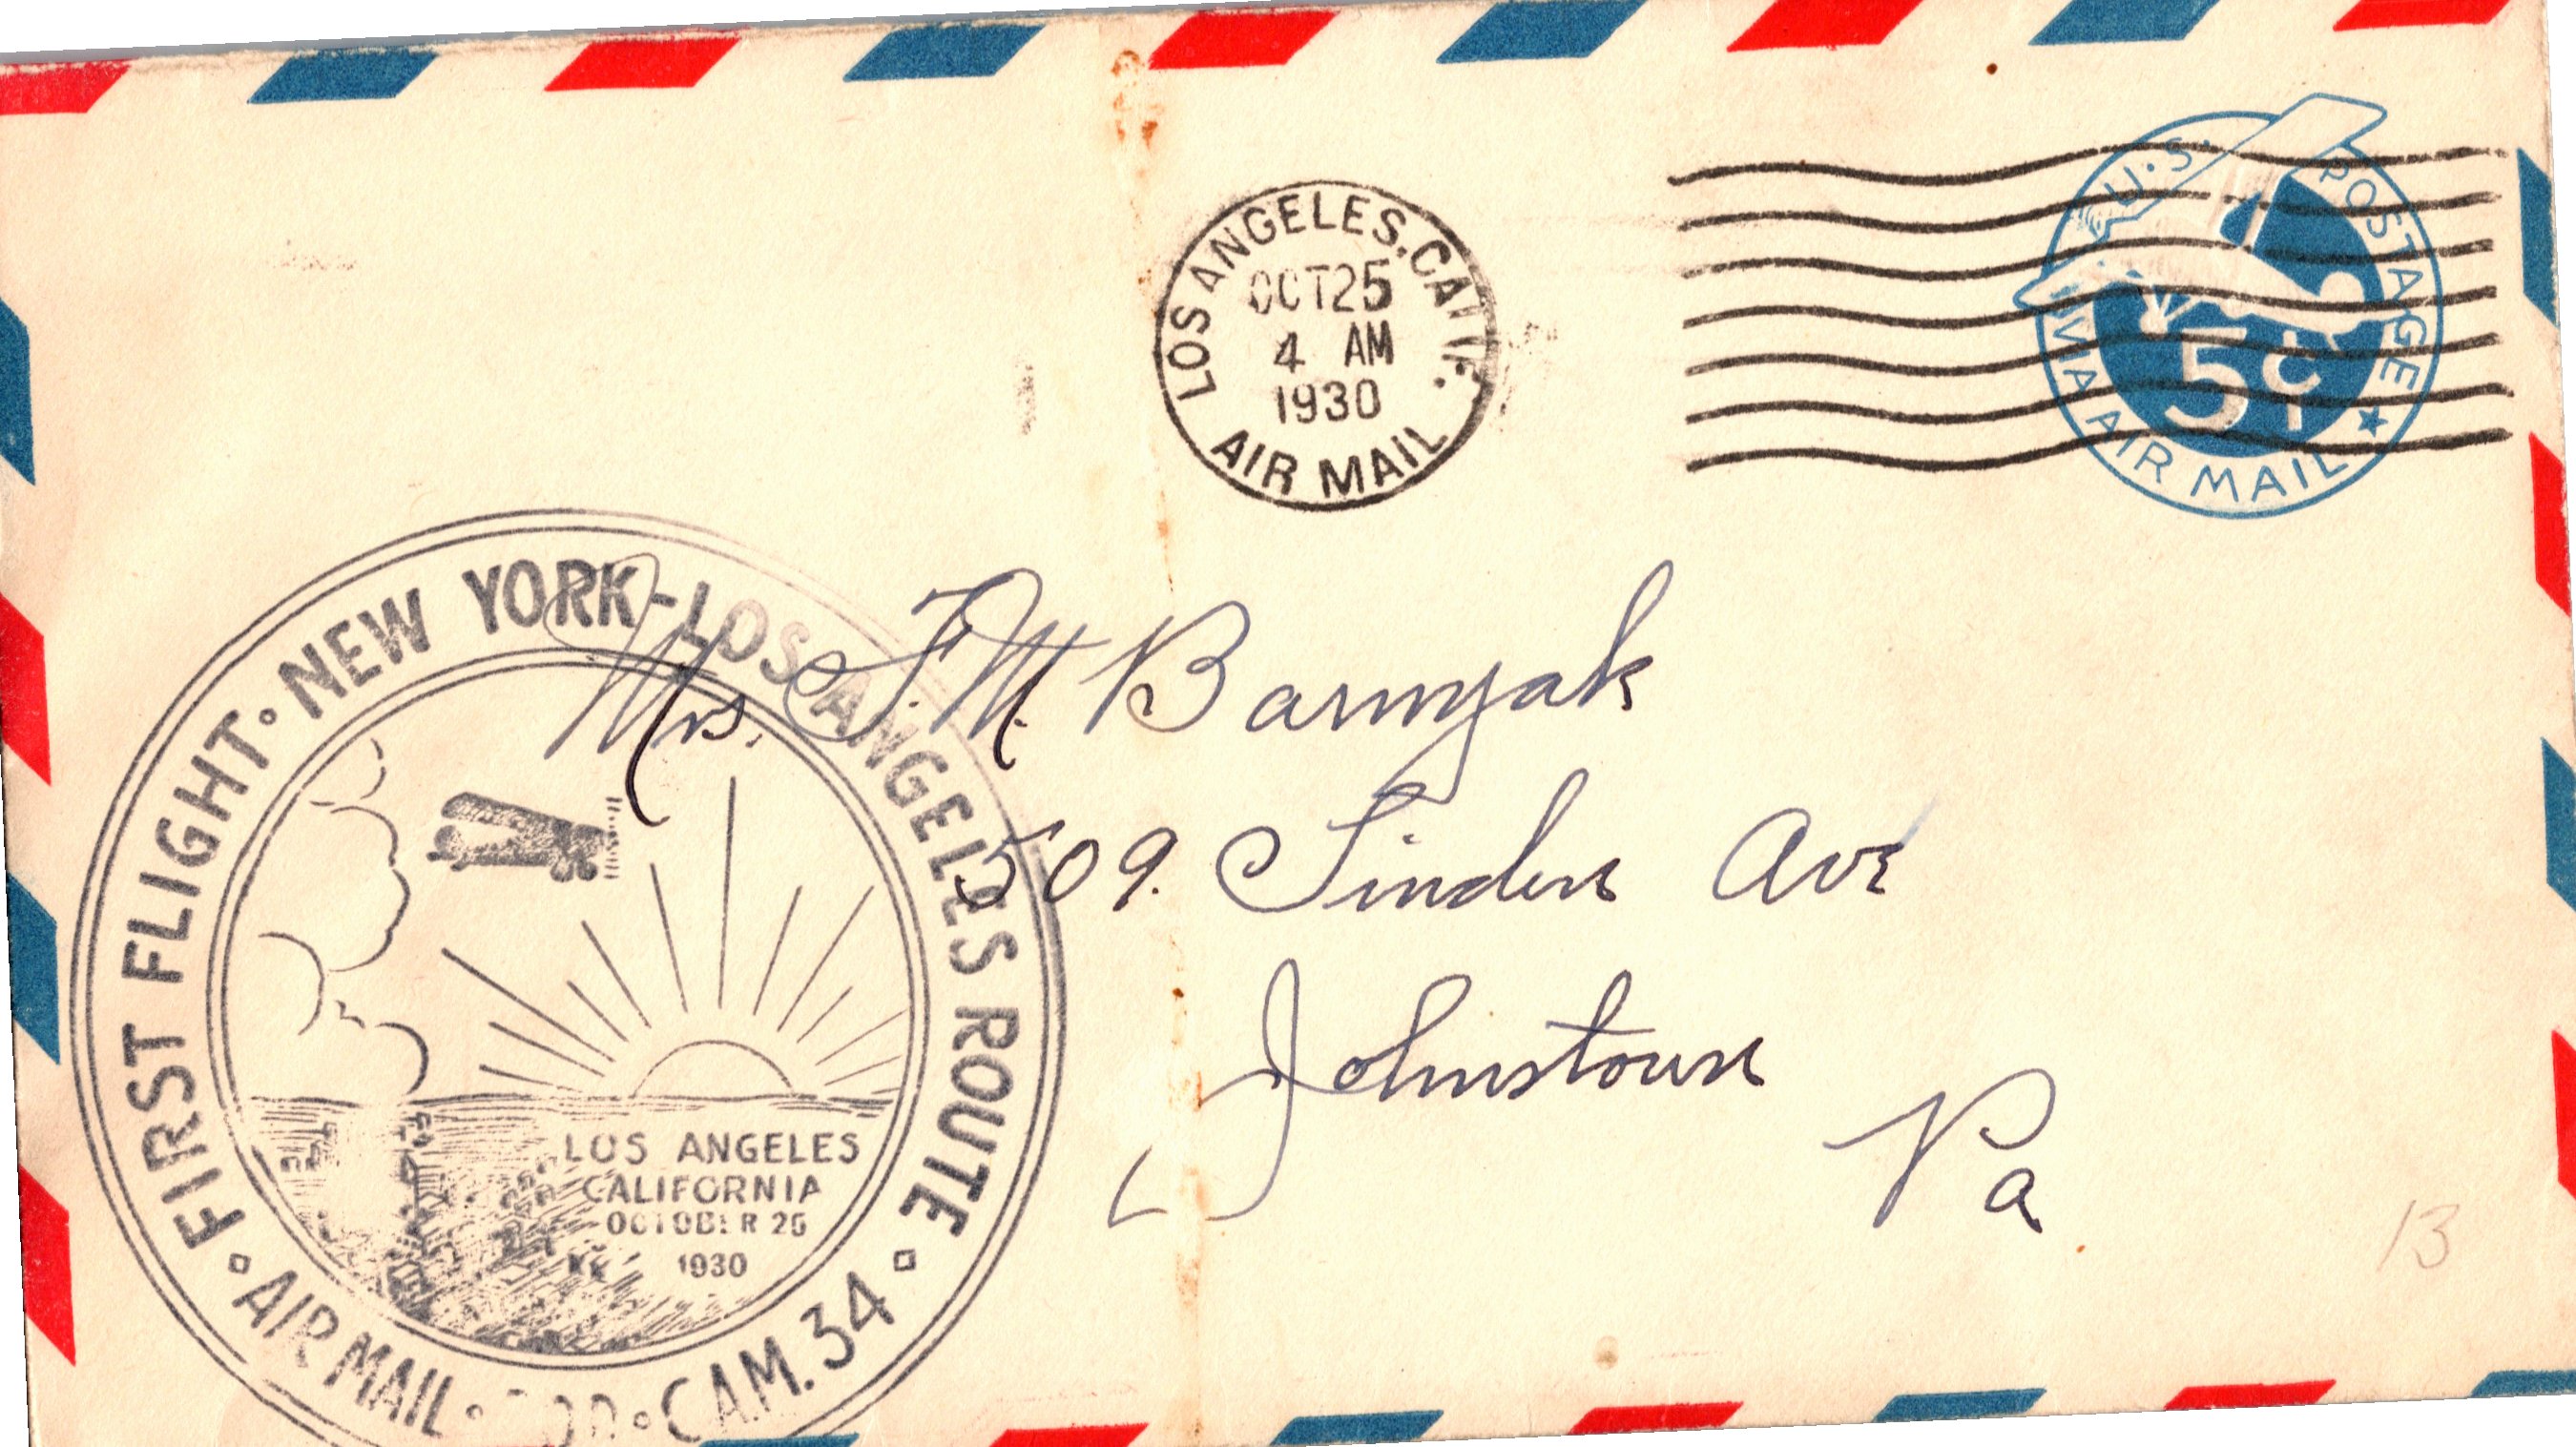 U.S. POSTAGE
VIA AIR MAIL
5¢
LOS ANGELES, CALIF.
OCT 25
4 AM
1930
AIR MAIL
FIRST FLIGHT · NEW YORK-LOS ANGELES ROUTE
AIR MAIL · C.A.M. 34
LOS ANGELES
CALIFORNIA
OCTOBER 25
1930
Mrs. F. M. Barnyak
509. Linden Ave
Johnstown
Pa
13